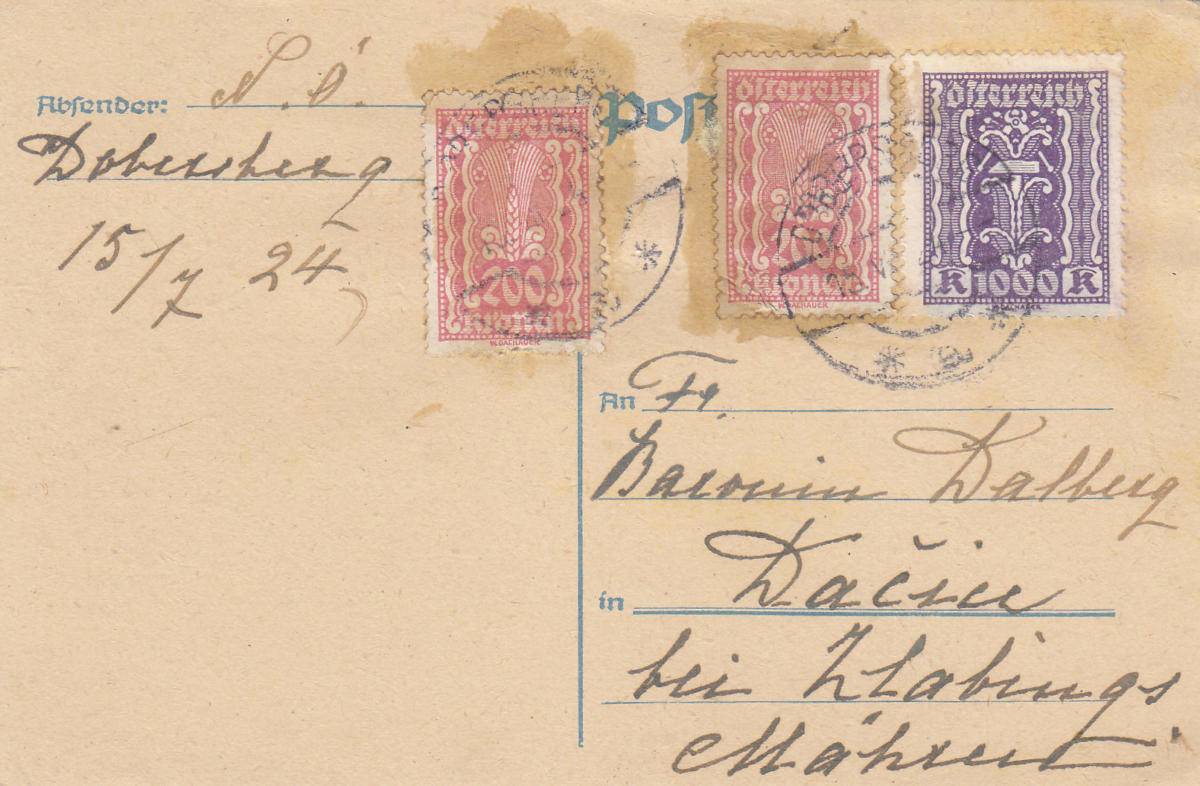 Absender: N. Ö.
Dobersberg
15/7 24
Post
Österreich
200
Kronen
W.DACHAUER
Österreich
200
Kronen
W.DACHAUER
Österreich
K 1000 K
W.DACHAUER
An Fr.
Baronin Dalberg
in Dačic
bei Zlabings
Mähren